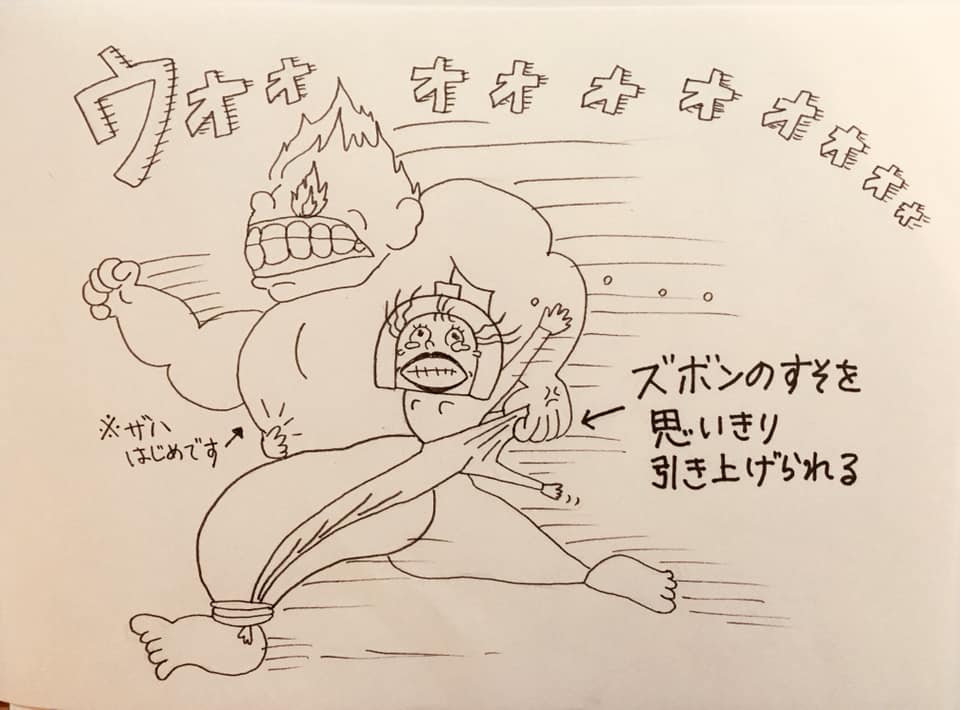 ウオォ オオオオオオオォ
ズボンのすそを
思いきり
引き上げられる
※ザハ
はじめです